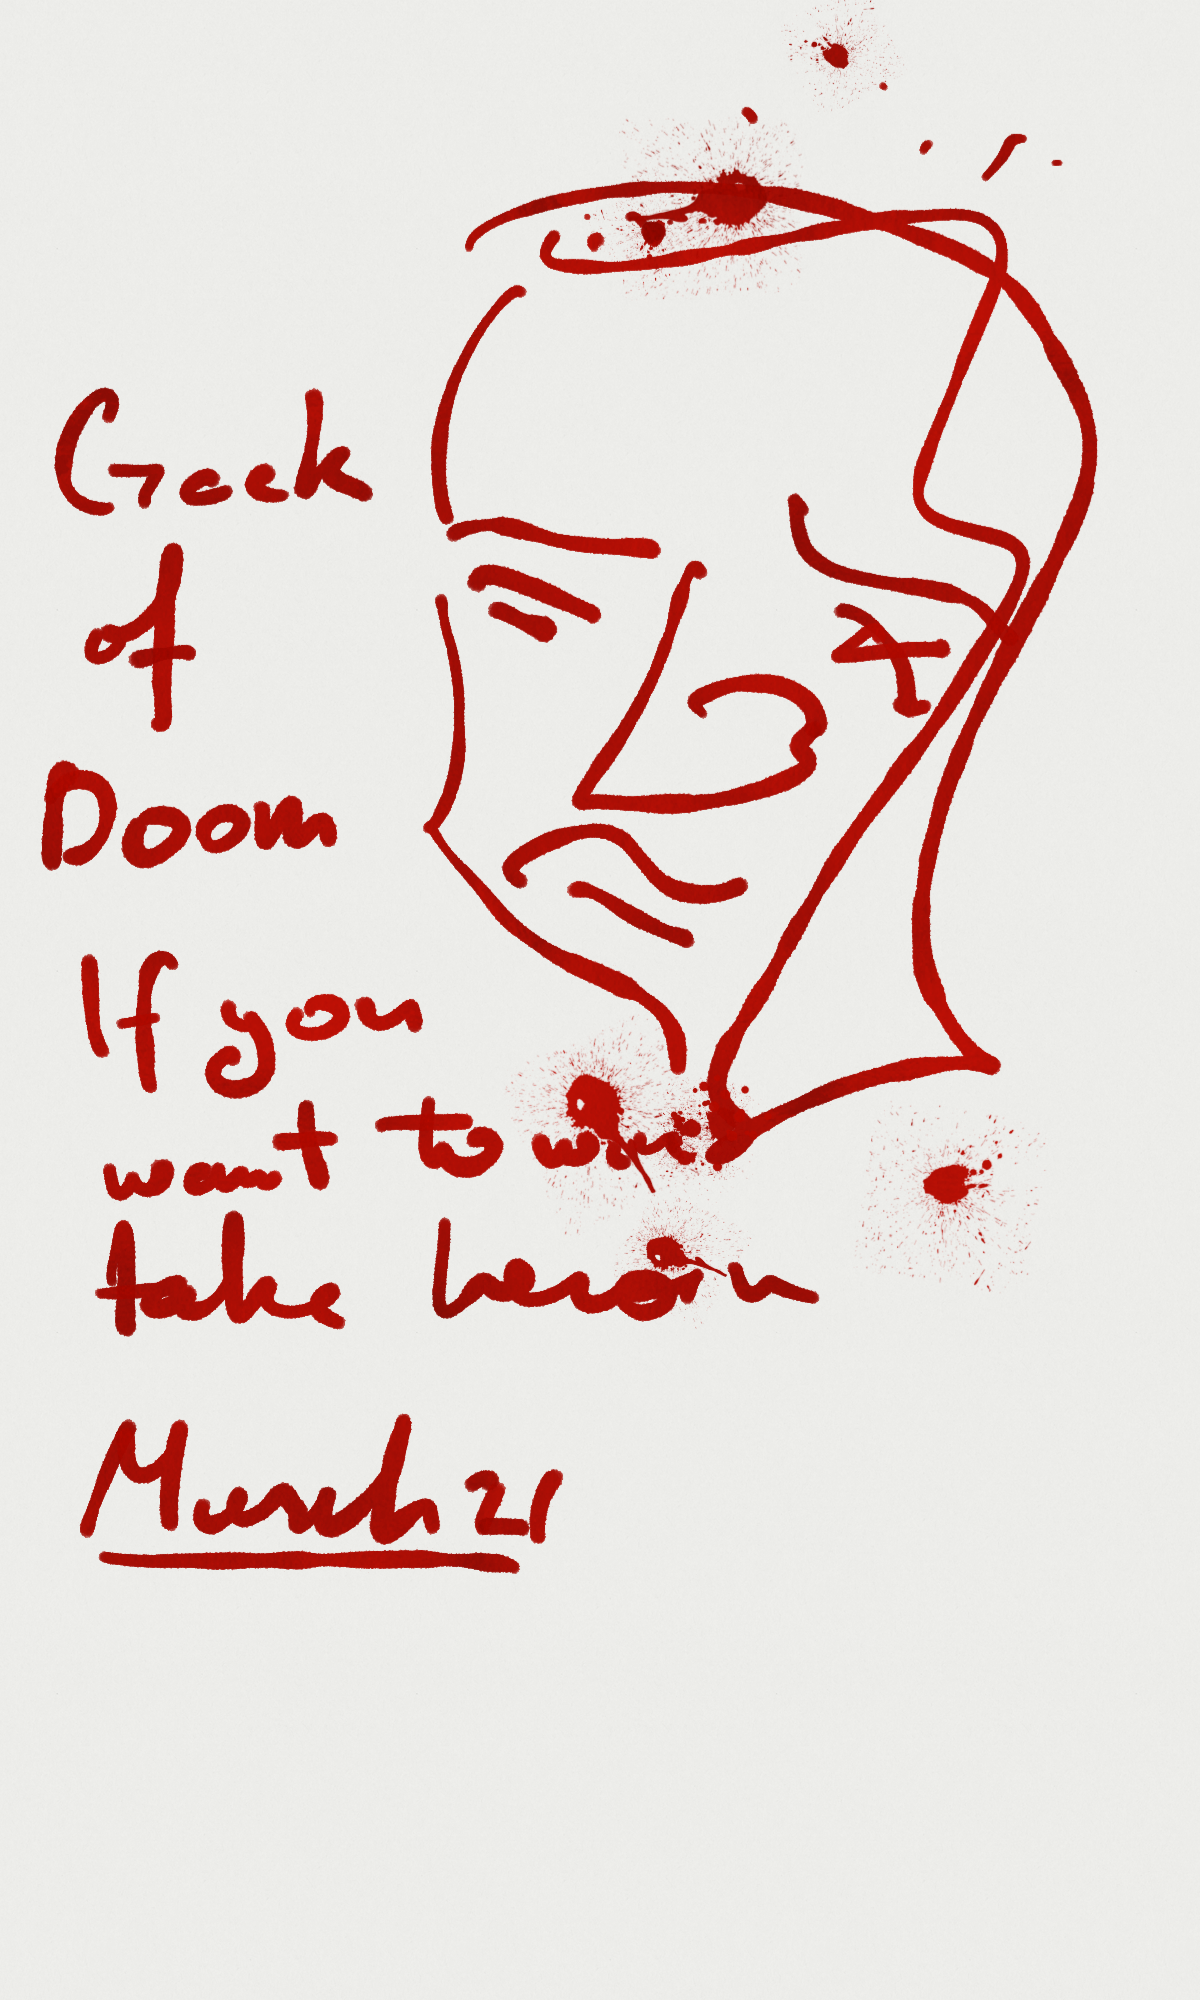 Geek
of
Doom
If you
want to
take heroin
March 21